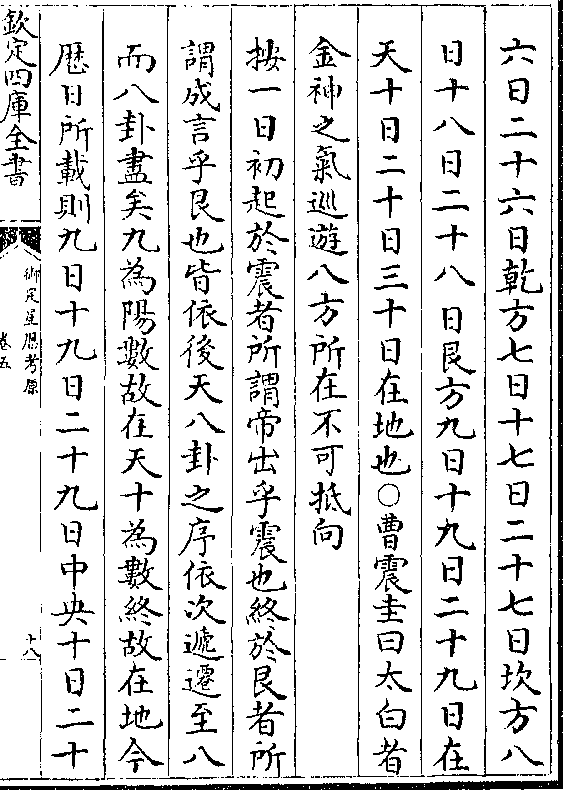 六日二十六日乾方七日十七日二十七日坎方八
日十八日二十八日艮方九日十九日二十九日在
天十日二十日三十日在地也○曹震圭曰太白者
金神之氣巡遊八方所在不可抵向
按一日初起於震者所謂帝出乎震也終於艮者所
謂成言乎艮也皆依後天八卦之序依次遞遷至八
而八卦盡矣九為陽數故在天十為數終故在地今
厯日所載則九日十九日二十九日中央十日二十
欽定四庫全書
御定星厯考原
卷五
十八